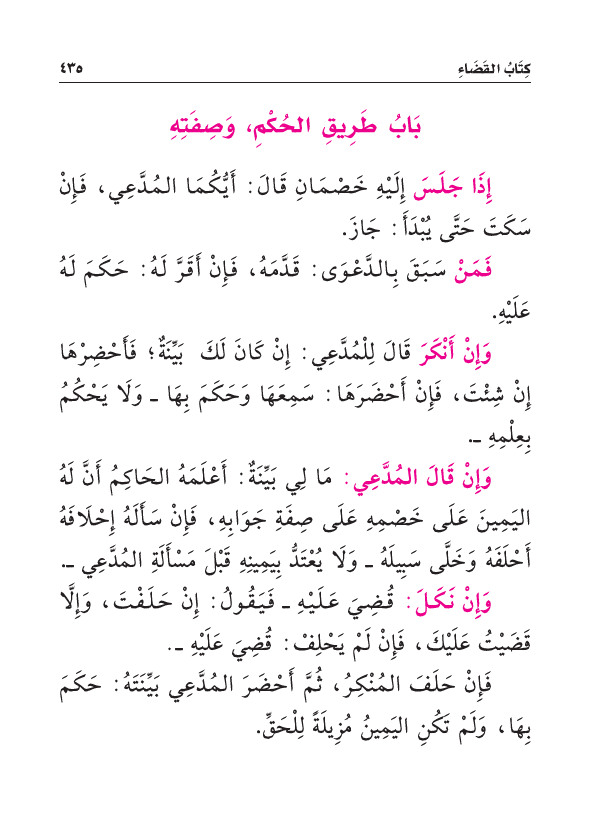 كِتَابُ القَضَاءِ ٤٣٥
بَابُ طَرِيقِ الحُكْمِ، وَصِفَتِهِ
إِذَا جَلَسَ إِلَيْهِ خَصْمَانِ قَالَ: أَيُّكُمَا المُدَّعِي، فَإِنْ
سَكَتَ حَتَّى يُبْدَأَ: جَازَ.
فَمَنْ سَبَقَ بِالدَّعْوَى: قَدَّمَهُ، فَإِنْ أَقَرَّ لَهُ: حَكَمَ لَهُ
عَلَيْهِ.
وَإِنْ أَنْكَرَ قَالَ لِلْمُدَّعِي: إِنْ كَانَ لَكَ بَيِّنَةٌ؛ فَأَحْضِرْهَا
إِنْ شِئْتَ، فَإِنْ أَحْضَرَهَا: سَمِعَهَا وَحَكَمَ بِهَا ـ وَلَا يَحْكُمُ
بِعِلْمِهِ ـ.
وَإِنْ قَالَ المُدَّعِي: مَا لِي بَيِّنَةٌ: أَعْلَمَهُ الحَاكِمُ أَنَّ لَهُ
اليَمِينَ عَلَى خَصْمِهِ عَلَى صِفَةِ جَوَابِهِ، فَإِنْ سَأَلَهُ إِحْلَافَهُ
أَحْلَفَهُ وَخَلَّى سَبِيلَهُ ـ وَلَا يُعْتَدُّ بِيَمِينِهِ قَبْلَ مَسْأَلَةِ المُدَّعِي ـ.
وَإِنْ نَكَلَ: قُضِيَ عَلَيْهِ ـ فَيَقُولُ: إِنْ حَلَفْتَ، وَإِلَّا
قَضَيْتُ عَلَيْكَ، فَإِنْ لَمْ يَحْلِفْ: قُضِيَ عَلَيْهِ ـ.
فَإِنْ حَلَفَ المُنْكِرُ، ثُمَّ أَحْضَرَ المُدَّعِي بَيِّنَتَهُ: حَكَمَ
بِهَا، وَلَمْ تَكُنِ اليَمِينُ مُزِيلَةً لِلْحَقِّ.